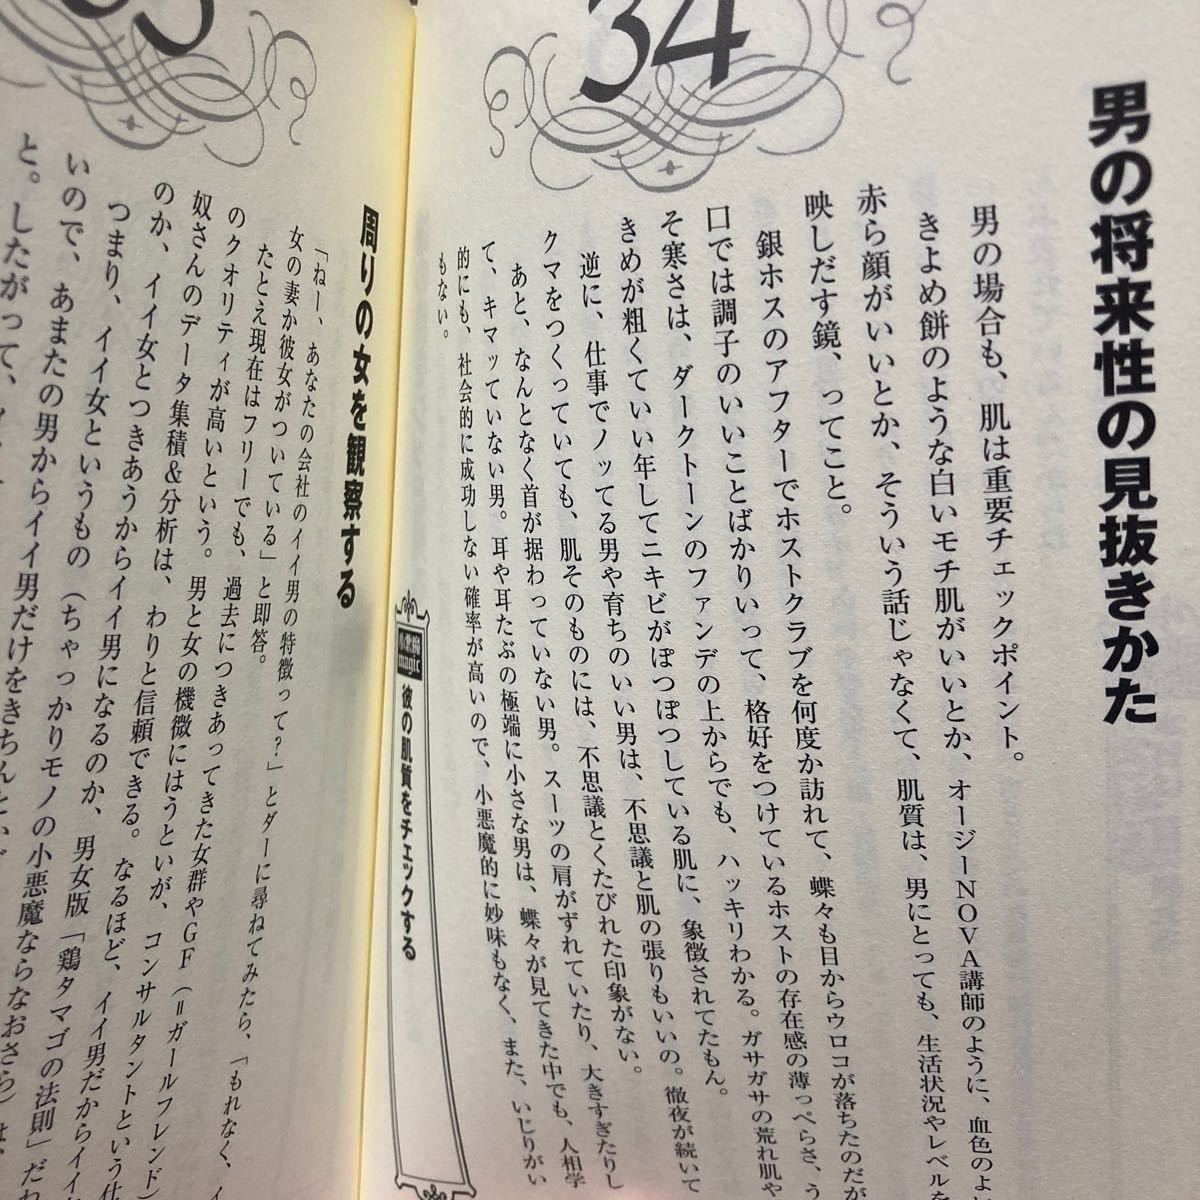 34
男の将来性の見抜きかた
男の場合も、肌は重要チェックポイント。
きよめ餅のような白いモチ肌がいいとか、オージーNOVA講師のように、血色のよ
赤ら顔がいいとか、そういう話じゃなくて、肌質は、男にとっても、生活状況やレベルを
映しだす鏡、ってこと。
銀ホスのアフターでホストクラブを何度か訪れて、蝶々も目からウロコが落ちたのだが
口では調子のいいことばかりいって、格好をつけているホストの存在感の薄っぺらさ、う
そ寒さは、ダークトーンのファンデの上からでも、ハッキリわかる。ガサガサの荒れ肌や
きめが粗くていい年してニキビがぽつぽつしている肌に、象徴されてたもん。
逆に、仕事でノッてる男や育ちのいい男は、不思議と肌の張りもいいの。徹夜が続いて
クマをつくっていても、肌そのものには、不思議とくたびれた印象がない。
あと、なんとなく首が据わっていない男。スーツの肩がずれていたり、大きすぎたりし
て、キマッていない男。耳や耳たぶの極端に小さな男は、蝶々が見てきた中でも、人相学
的にも、社会的に成功しない確率が高いので、小悪魔的に妙味もなく、また、いじりがい
もない。
小悪魔
magic
彼の肌質をチェックする
周りの女を観察する
「ねー、あなたの会社のイイ男の特徴って?」とダーに尋ねてみたら、「もれなく、イ
女の妻か彼女がついている」と即答。
たとえ現在はフリーでも、過去につきあってきた女群やGF(=ガールフレンド)
のクオリティが高いという。男と女の機微にはうといが、コンサルタントという仕
奴さんのデータ集積&分析は、わりと信頼できる。なるほど、イイ男だからイイ
のか、イイ女とつきあうからイイ男になるのか、男女版「鶏タマゴの法則」だ
つまり、イイ女というもの(ちゃっかりモノの小悪魔ならなおさら)は、
いので、あまたの男からイイ男だけをきちんと
と。したがって、